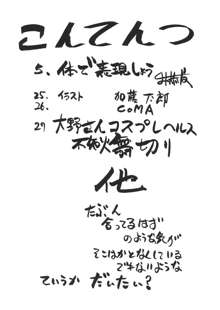 こんてんつ
5、体で表現しよう
25. イラスト 加藤 太郎
26. COMA
29 大野さんコスプレヘルス
不粋舞切り
他
たぶん
合ってるはず
のような気が
そこはかとなくしている
でもないような
ていうか だいたい?